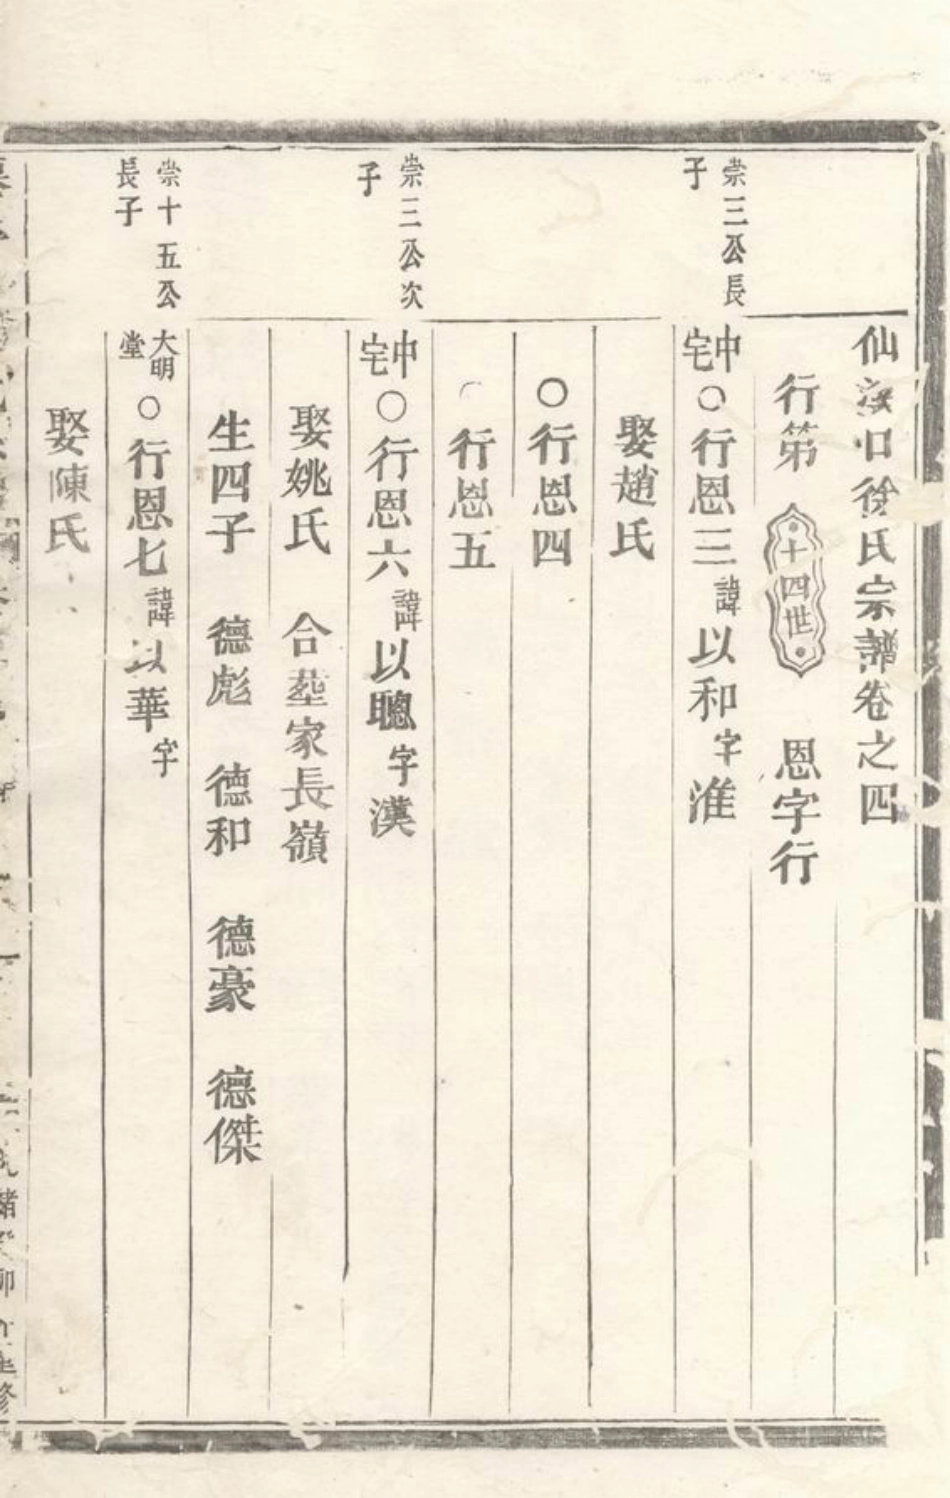 仙溪口徐氏宗譜卷之四
行第 十四世 恩字行
崇三公長子
中宅○行恩三諱以和字淮
娶趙氏
○行恩四
○行恩五
崇三公次子
中宅○行恩六諱以聰字漢
娶姚氏 合塟家長嶺
生四子 德彪 德和 德豪 德傑
崇十五公長子
大明堂○行恩七諱以華字
娶陳氏